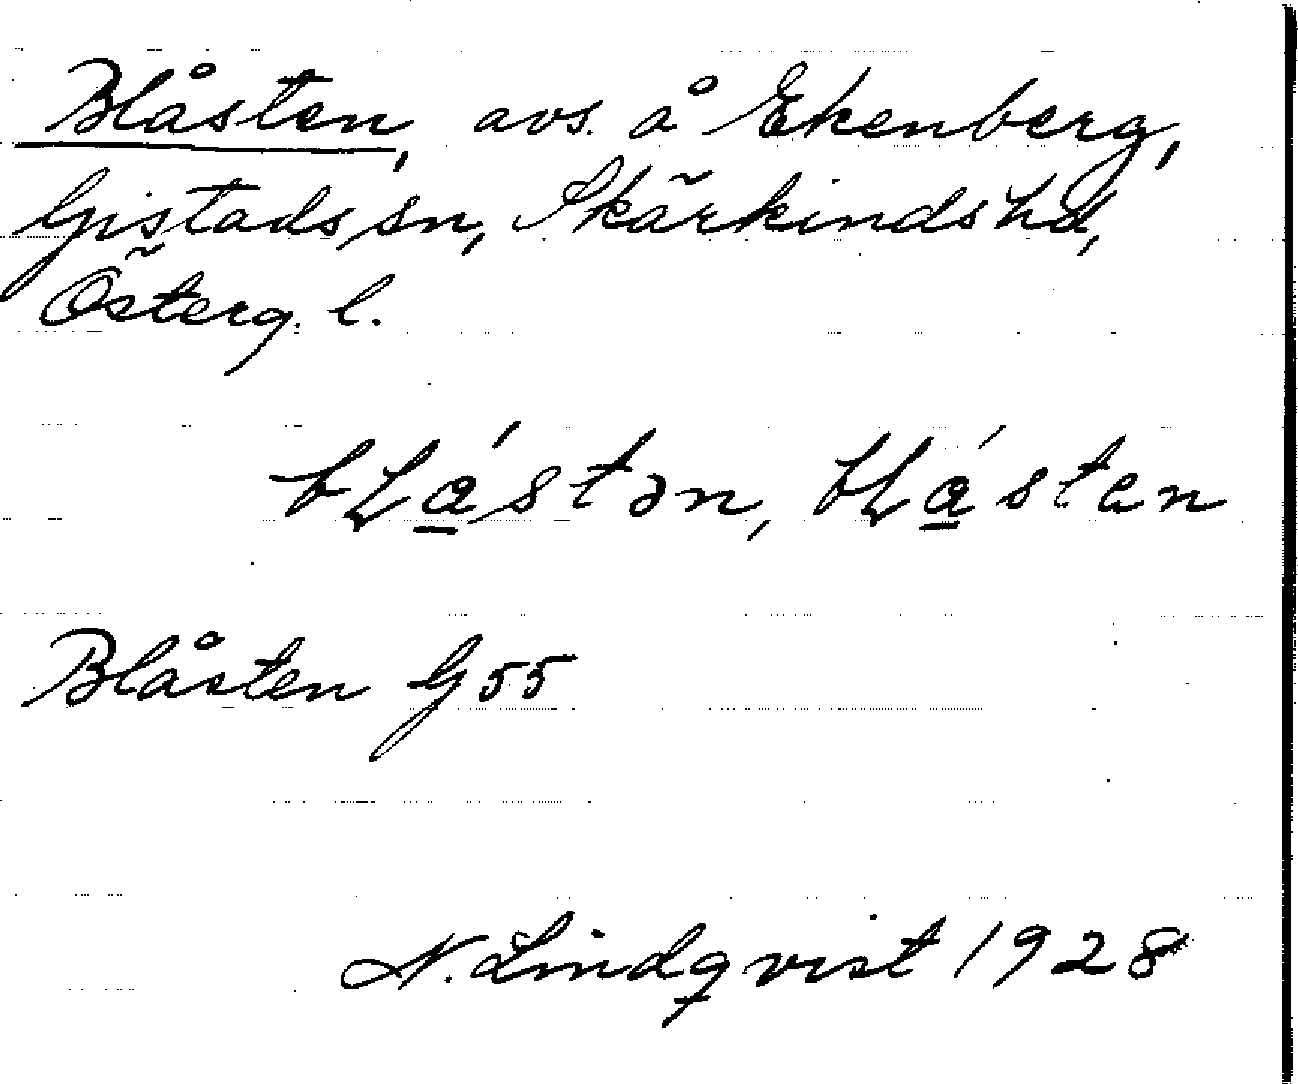 Blåsten, avs. å Ekenberg,
Gistads sn, Skärkinds hd,
Österg. l.
bḷa̲´stən, bḷa̲´sten
Blåsten G 55
N. Lindqvist 1928